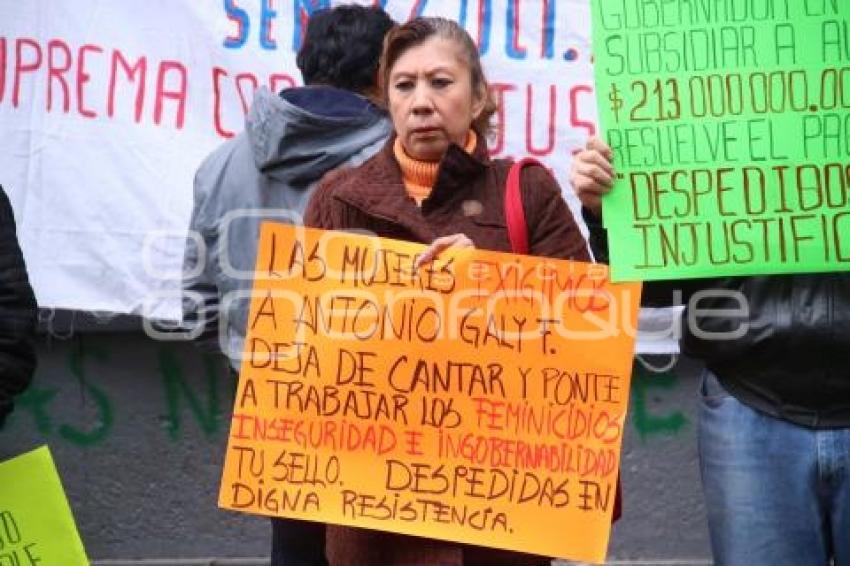 SUPREMA CO
JUS
GOBERNADOR EN
SUBSIDIAR A AU
$213 000 000.00
RESUELVE EL PAG
"DESPEDIDOS
INJUSTIFIC
LAS MUJERES EXIGIMOS
A ANTONIO GALY F.
DEJA DE CANTAR Y PONTE
A TRABAJAR LOS FEMINICIDIOS
INSEGURIDAD E INGOBERNABILIDAD
TU SELLO. DESPEDIDAS EN
DIGNA RESISTENCIA.
agencia
enfoque